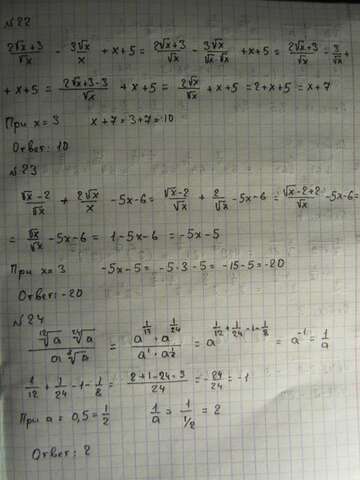 №22
(2√x+3)/√x - 3√x/x + x+5 = (2√x+3)/√x - 3√x/(√x·√x) + x+5 = (2√x+3)/√x = 3/√x +
+ x+5 = (2√x+3-3)/√x + x+5 = 2√x/√x + x+5 = 2+x+5 = x+7
При x=3 x+7=3+7=10
Ответ: 10
№23
(√x-2)/√x + 2√x/x -5x-6 = (√x-2)/√x + 2/√x -5x-6 = (√x-2+2)/√x -5x-6=
= √x/√x -5x-6 = 1-5x-6 = -5x-5
При x=3 -5x-5=-5·3-5=-15-5=-20
Ответ: -20
№24
= = a^(1/12+1/24-1-1/8) = a^(-1) = 1/a
1/12 + 1/24 -1-1/8 = (2+1-24-3)/24 = -24/24 = -1
При a = 0,5 = 1/2 1/a = 1/(1/2) = 2
Ответ: 2